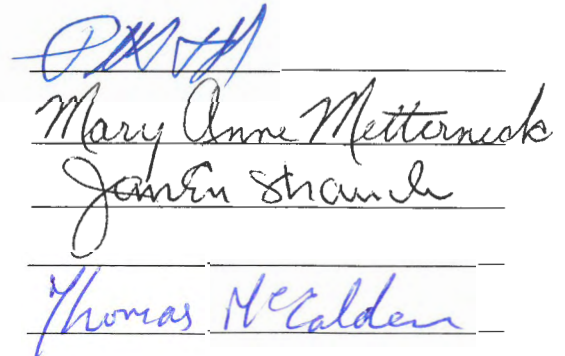 Mary Anne Metternick
Strauch
Thomas McCalden